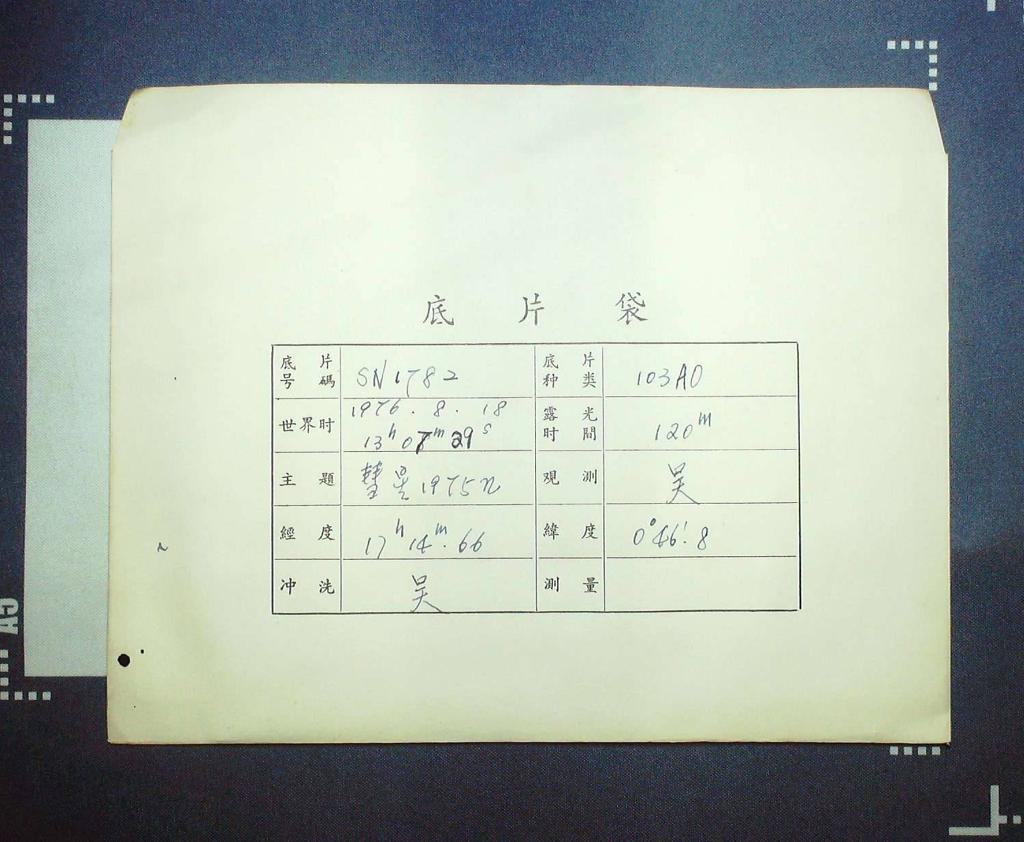 底 片 袋
底 片 号 碼 SN1782 底 片 种 类 103AO
世界时 1976.8.18 13h 08m 29s 露 光 时 間 120m
主 題 彗星1975n 观 測 吴
經 度 17h 14m.66 緯 度 0°46'.8
冲 洗 吴 測 量